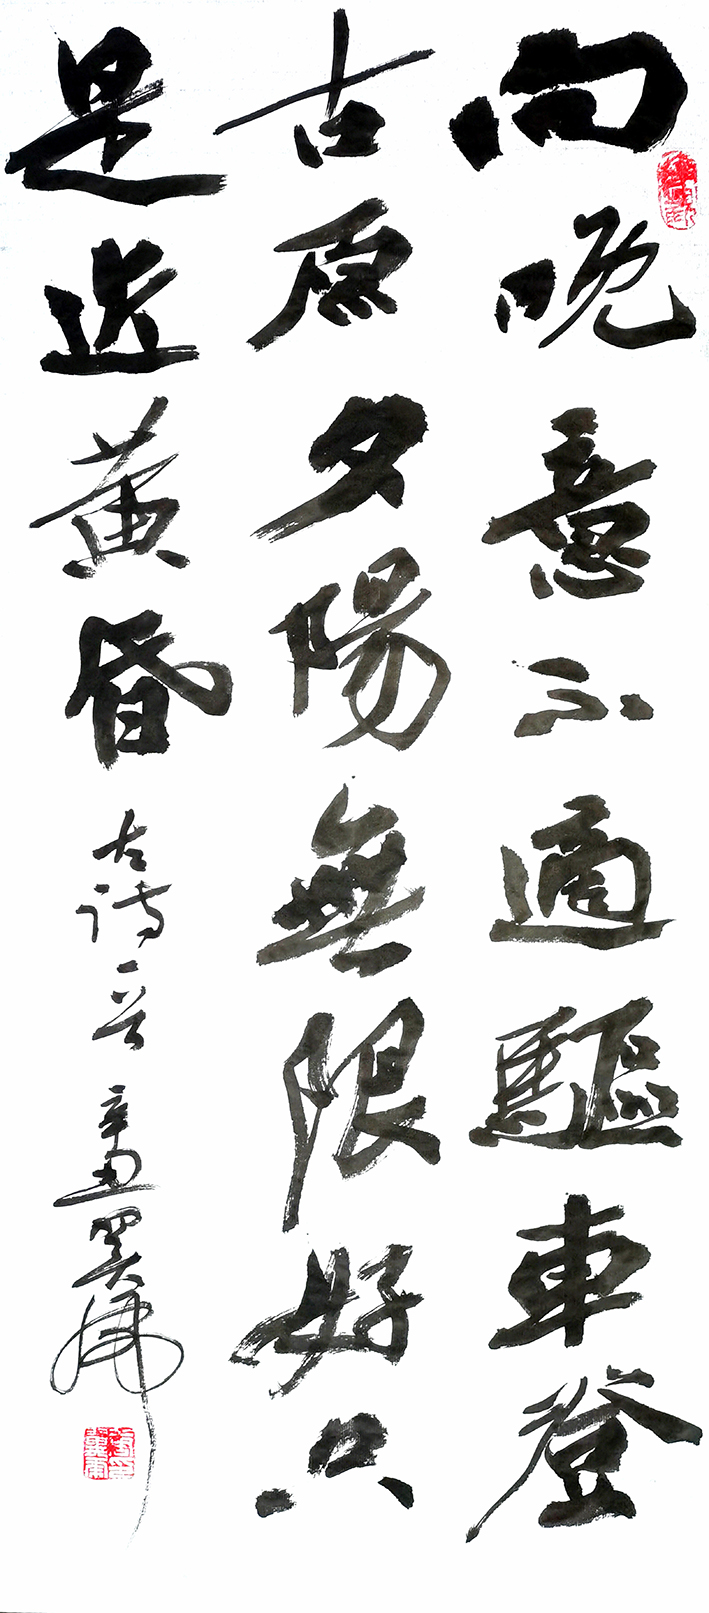 向晚意不適驅車登
古原夕陽無限好只
是近黃昏
古詩一首